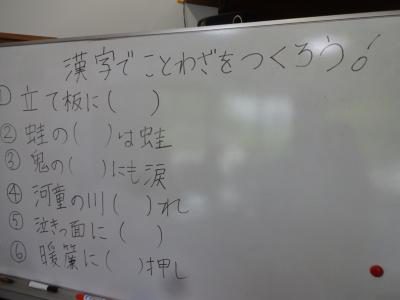 漢字でことわざをつくろう！
① 立て板に(　)
② 蛙の(　)は蛙
③ 鬼の(　)にも涙
④ 河童の川(　)れ
⑤ 泣きっ面に(　)
⑥ 暖簾に(　)押し